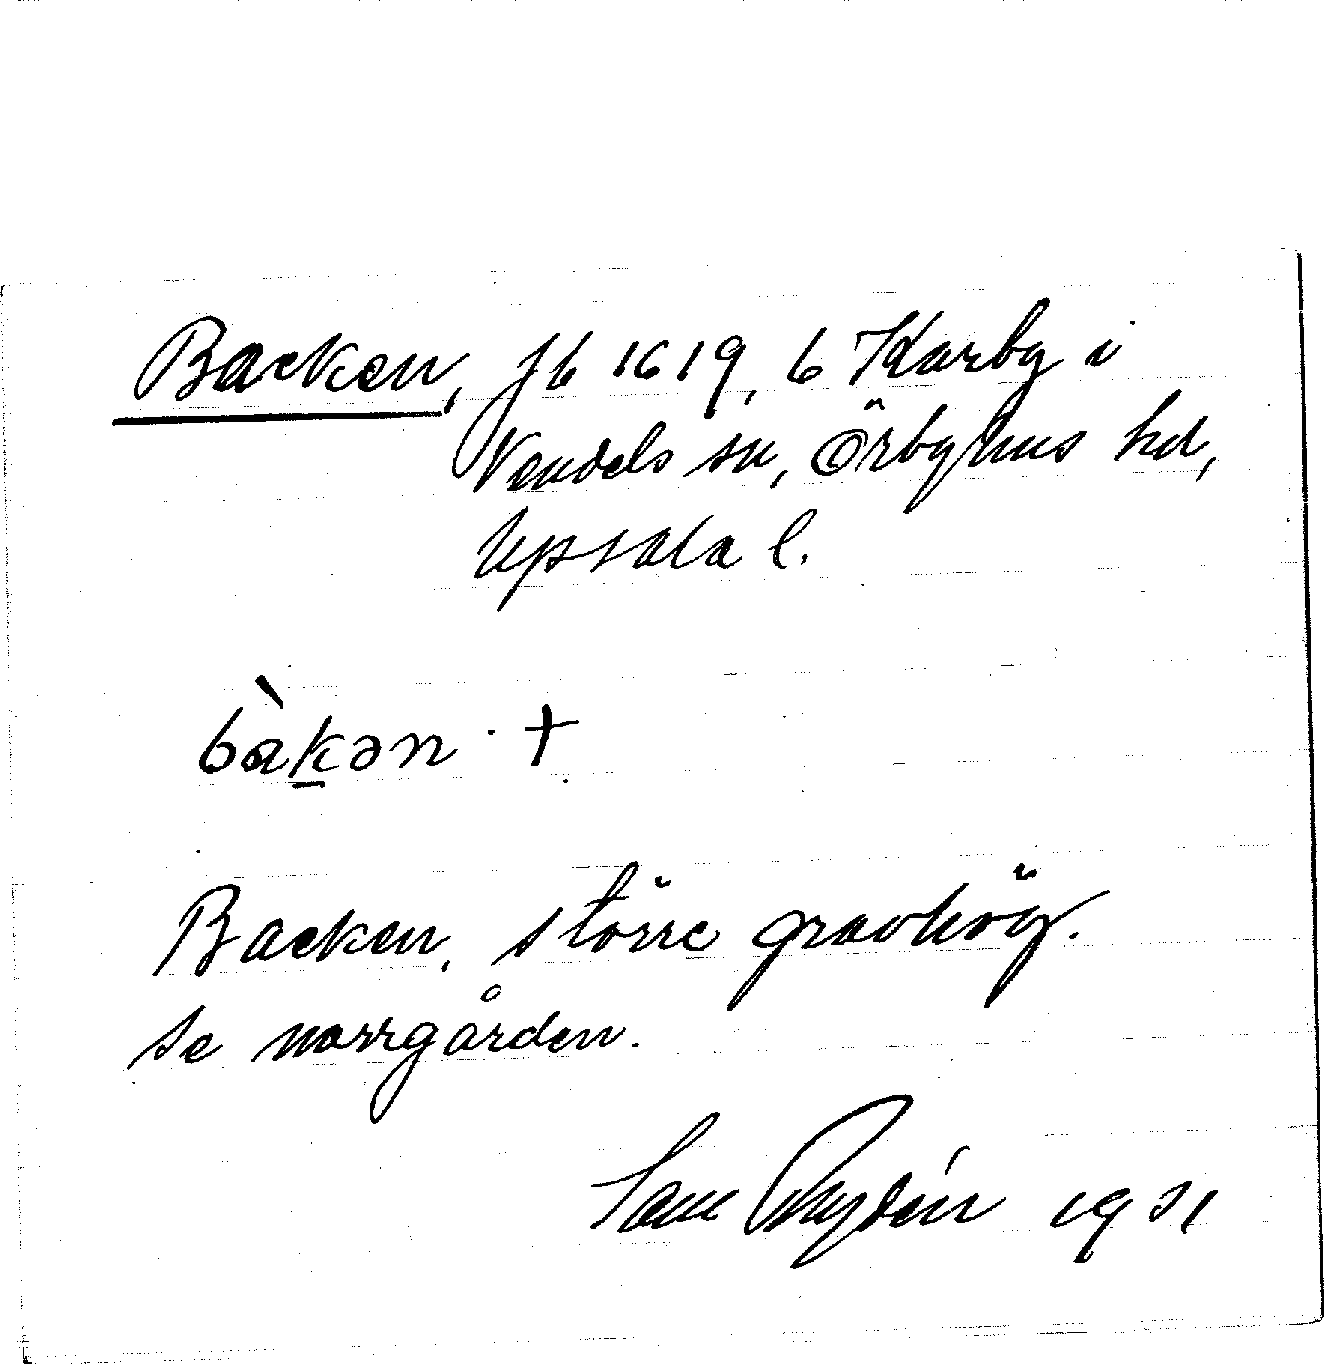 Backen, fb 1619, 6 Karby i
Vendels sn, Örbyhus hd,
Upsala l.
bàkən · +
Backen, större gravhög.
Se norrgården.
Sam Rydén 1931